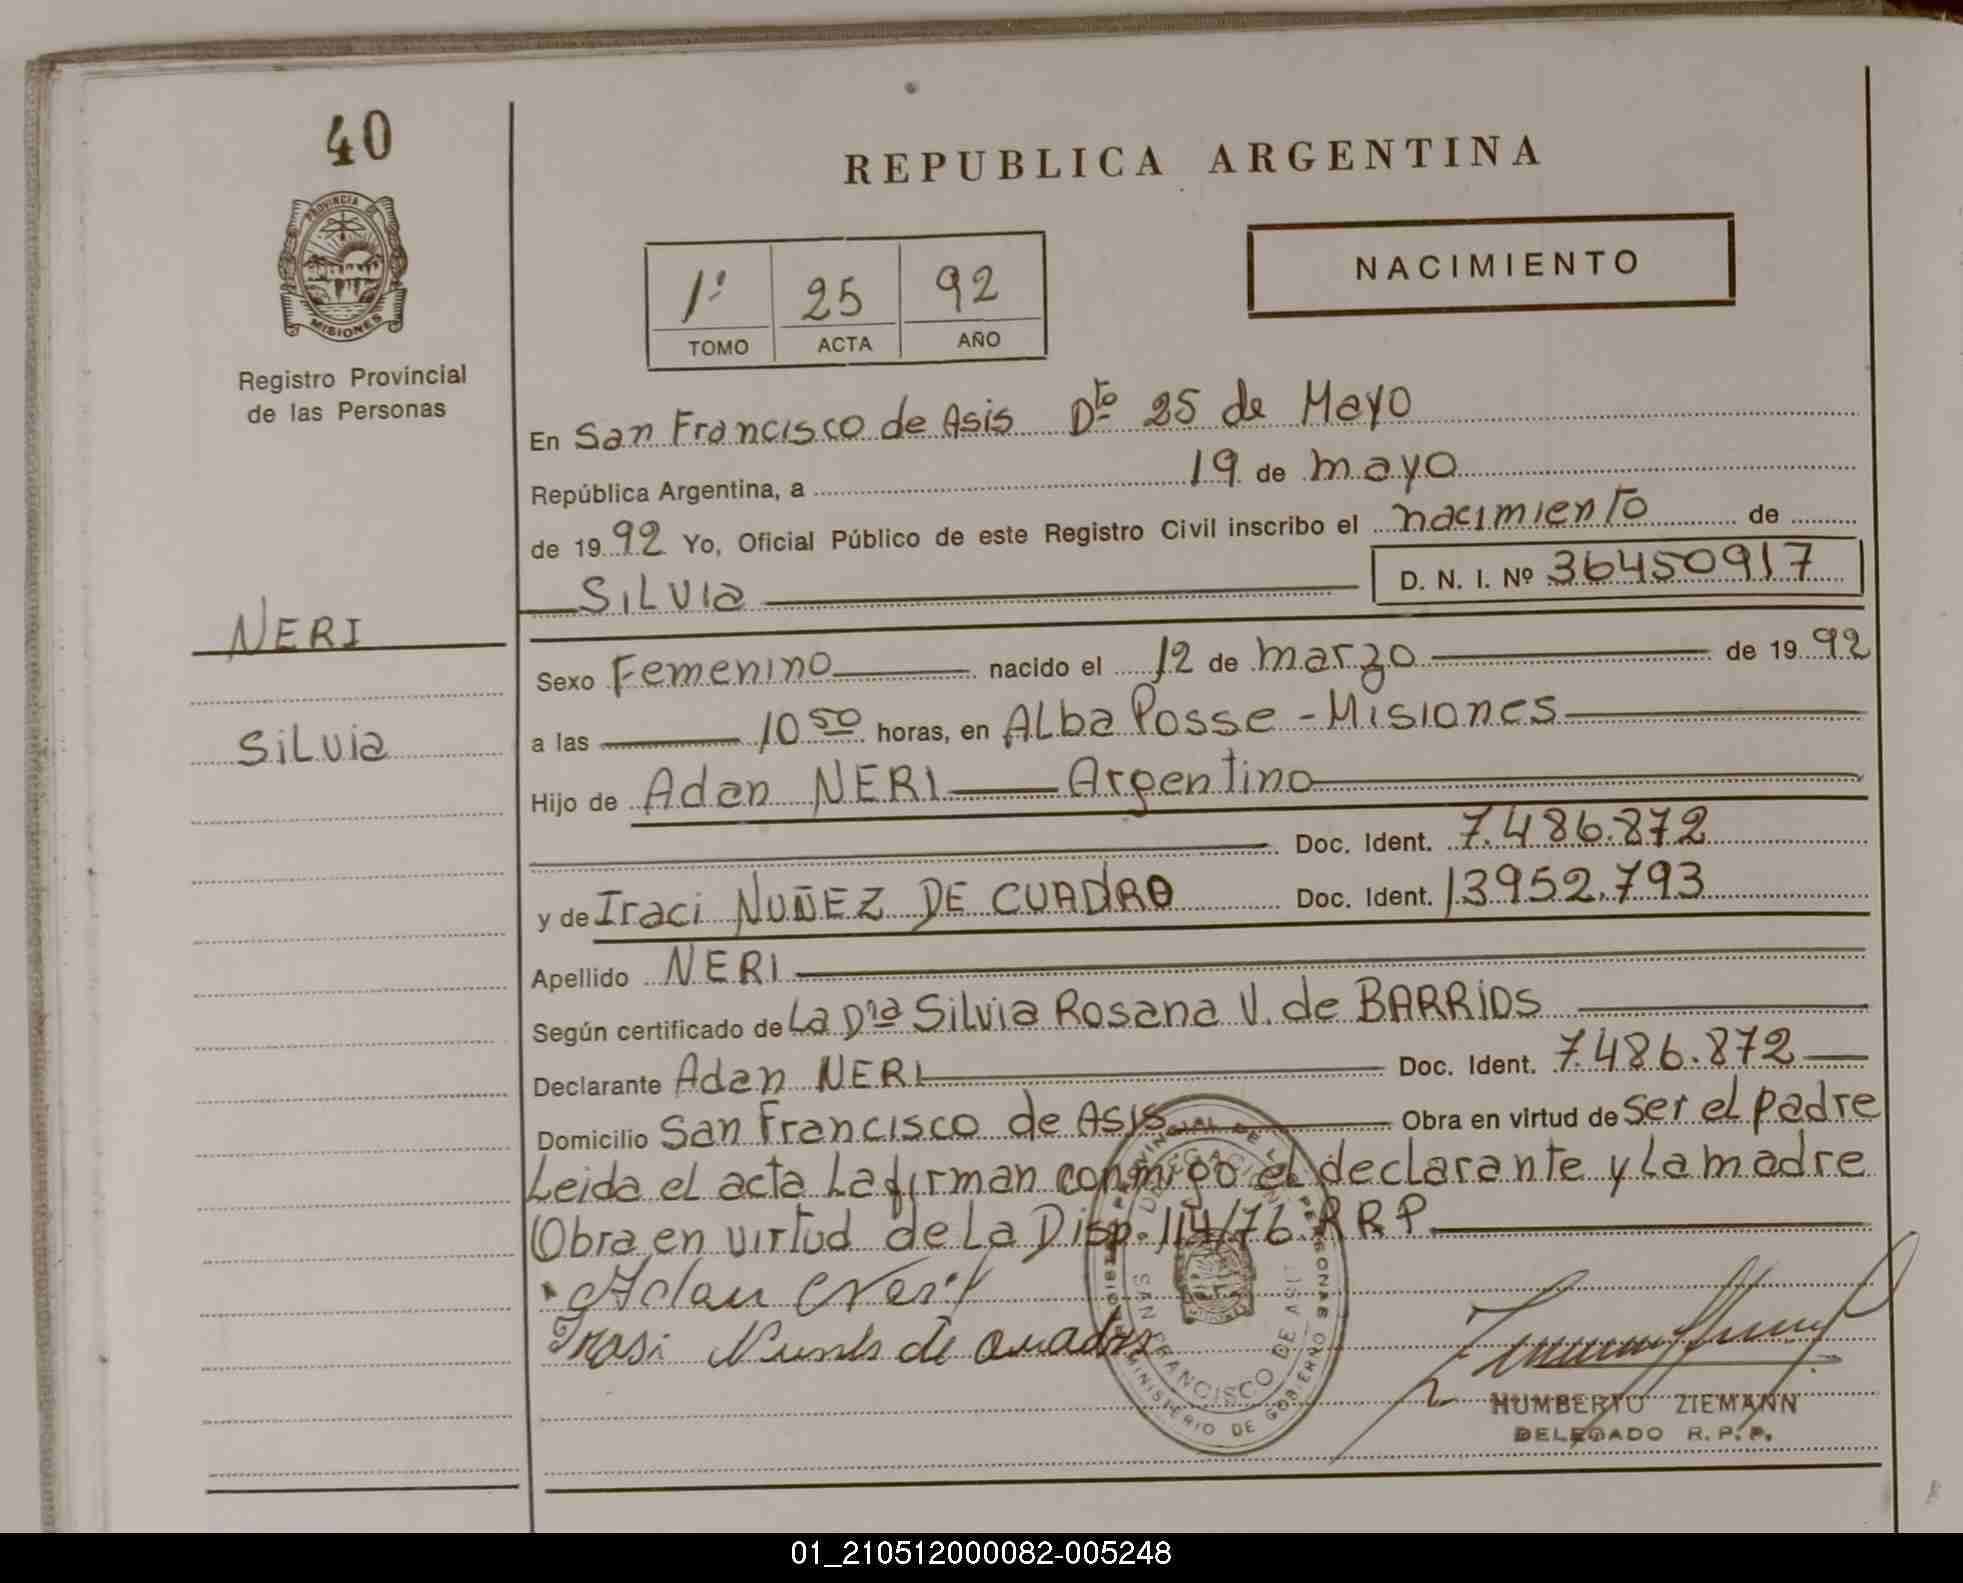 40
REPUBLICA ARGENTINA
PROVINCIA DE
MISIONES
Registro Provincial
de las Personas
1º 25 92
TOMO ACTA AÑO
NACIMIENTO
En San Francisco de Asis Dto 25 de Mayo
República Argentina, a 19 de mayo
de 1992 Yo, Oficial Público de este Registro Civil inscribo el nacimiento de
SiLVia D. N. I. Nº 36450917
NERI
SiLvia
Sexo Femenino nacido el 12 de marzo de 1992
a las 10 50 horas, en ALba Posse - Misiones
Hijo de Adan NERI Argentino
Doc. Ident. 7.486.872
y de Iraci NUÑEZ DE CUADRO Doc. Ident. 13952.793
Apellido NERI
Según certificado de La Dra Silvia Rosana V. de BARRIOS
Declarante Adan NERI Doc. Ident. 7.486.872
Domicilio San Francisco de Asis Obra en virtud de ser el padre
Leida el acta La firman conmigo el declarante y La madre
Obra en virtud de La Disp. 114/76 R R P
Adan Neri
Irasi Nunes de Quadros
SAN FRANCISCO DE ASIS
MINISTERIO DE GOBIERNO
HUMBERTO ZIEMANN
DELEGADO R. P. P.
01_210512000082-005248